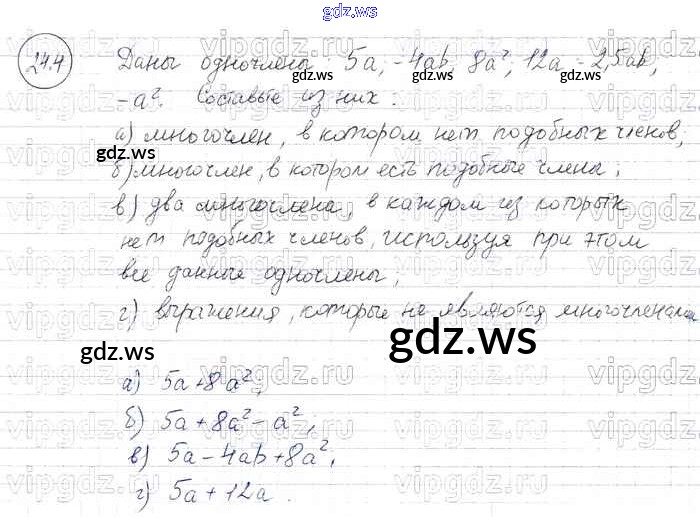 gdz.ws
24.4 Даны одночлены: 5a, -4ab, 8a², 12a, -2,5ab,
-a². Составьте из них:
а) многочлен, в котором нет подобных членов,
б) многочлен, в котором есть подобные члены;
в) два многочлена, в каждом из которых
нет подобных членов, используя при этом
все данные одночлены;
г) выражения, которые не являются многочленами
а) 5a+8a²;
б) 5a+8a²-a²;
в) 5a-4ab+8a²;
г) 5a+12a.
gdz.ws
gdz.ws
gdz.ws
gdz.ws
gdz.ws
vipgdz.ru